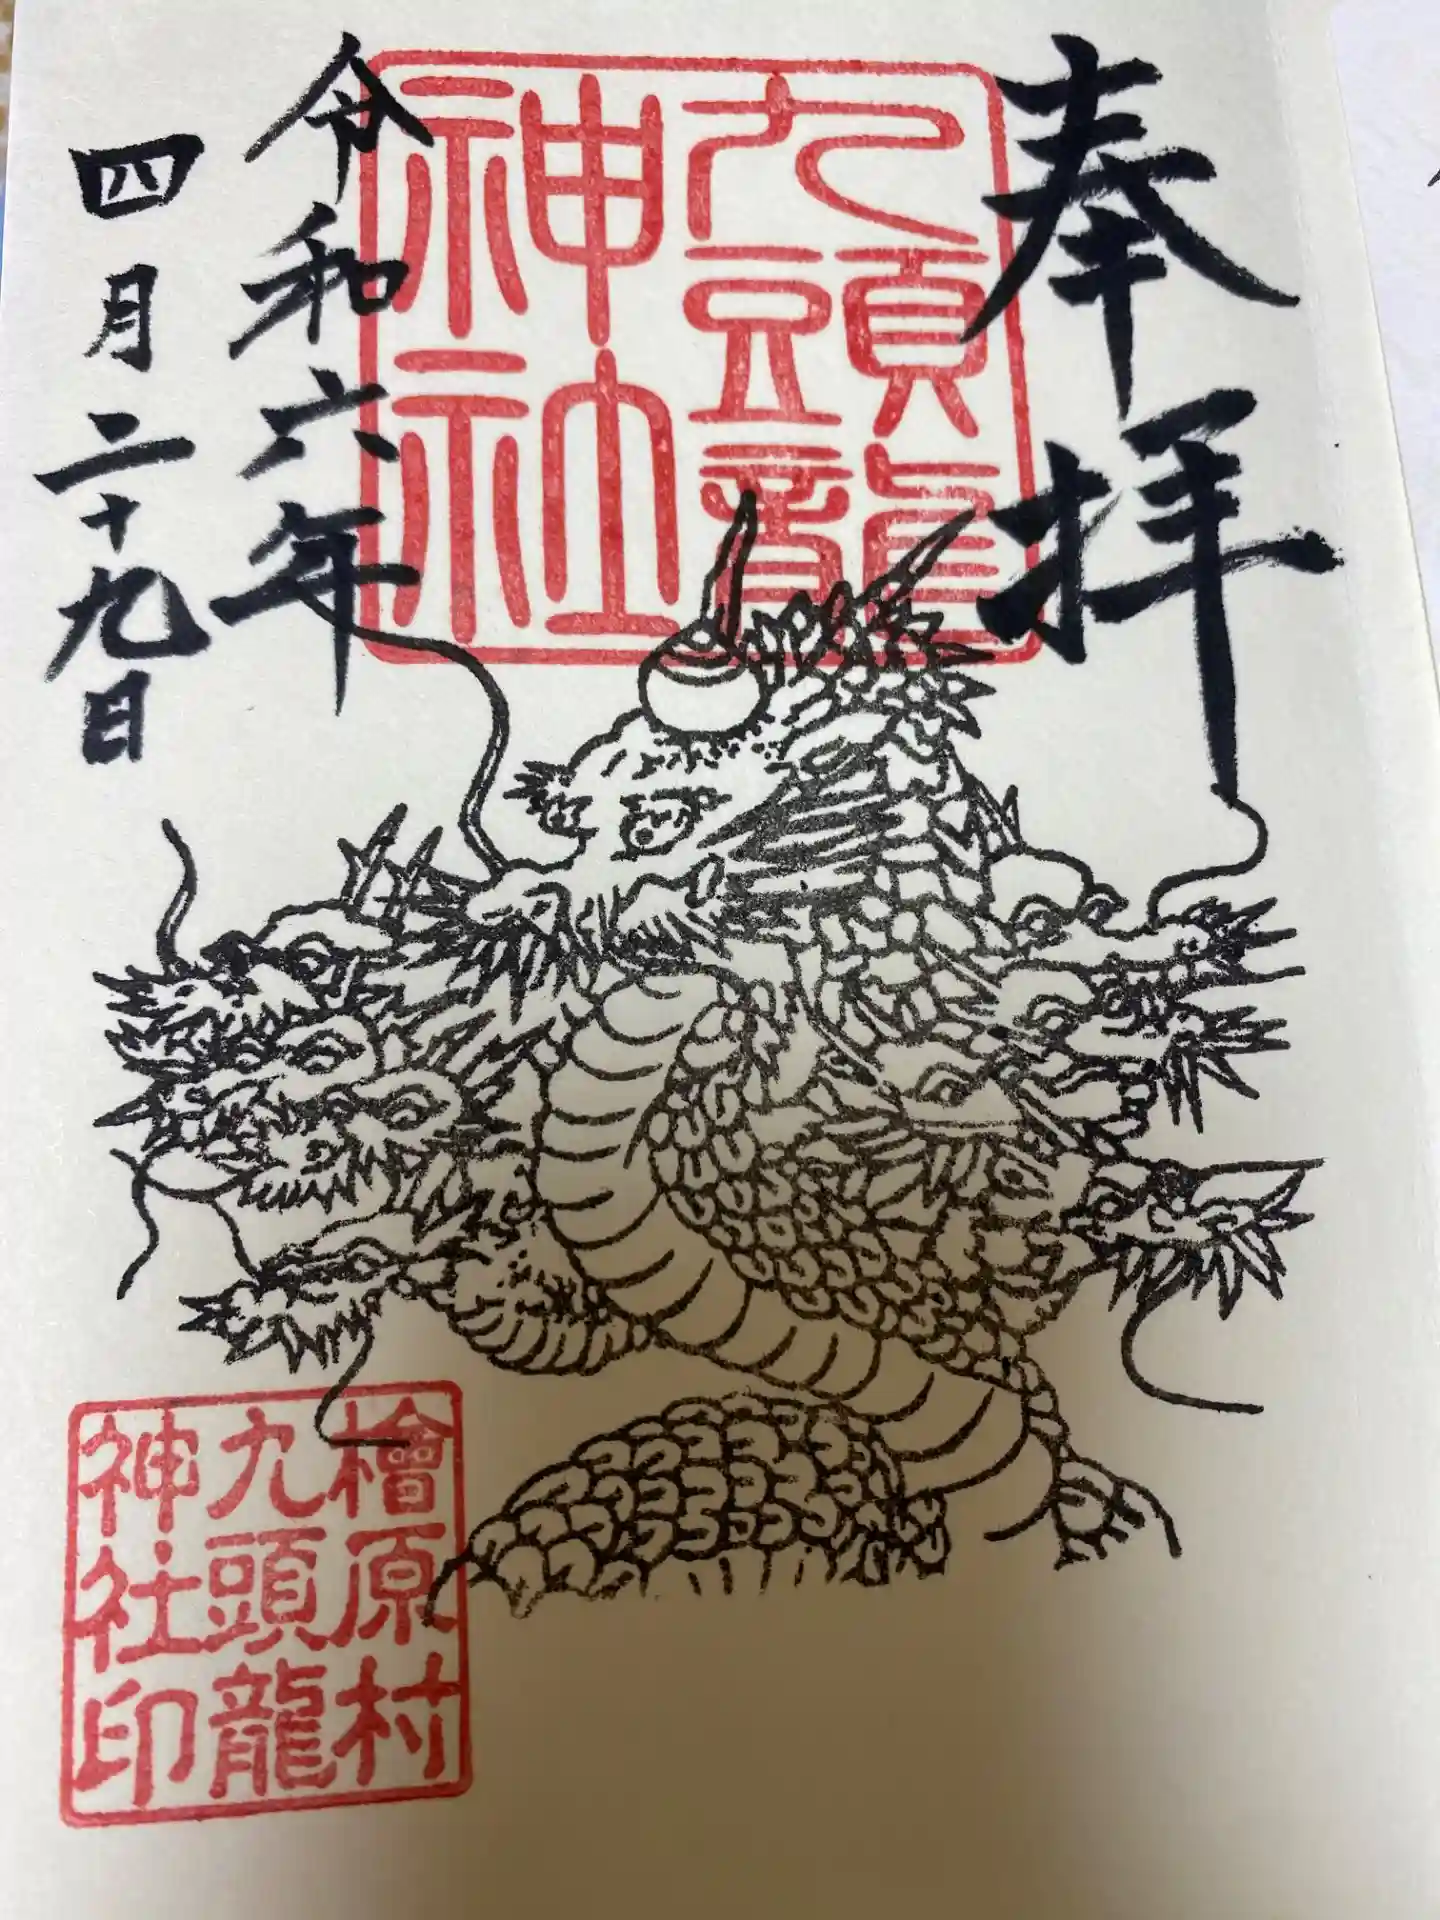 奉拝
九頭龍
神社
令和六年
四月二十九日
檜原村
九頭龍
神社印